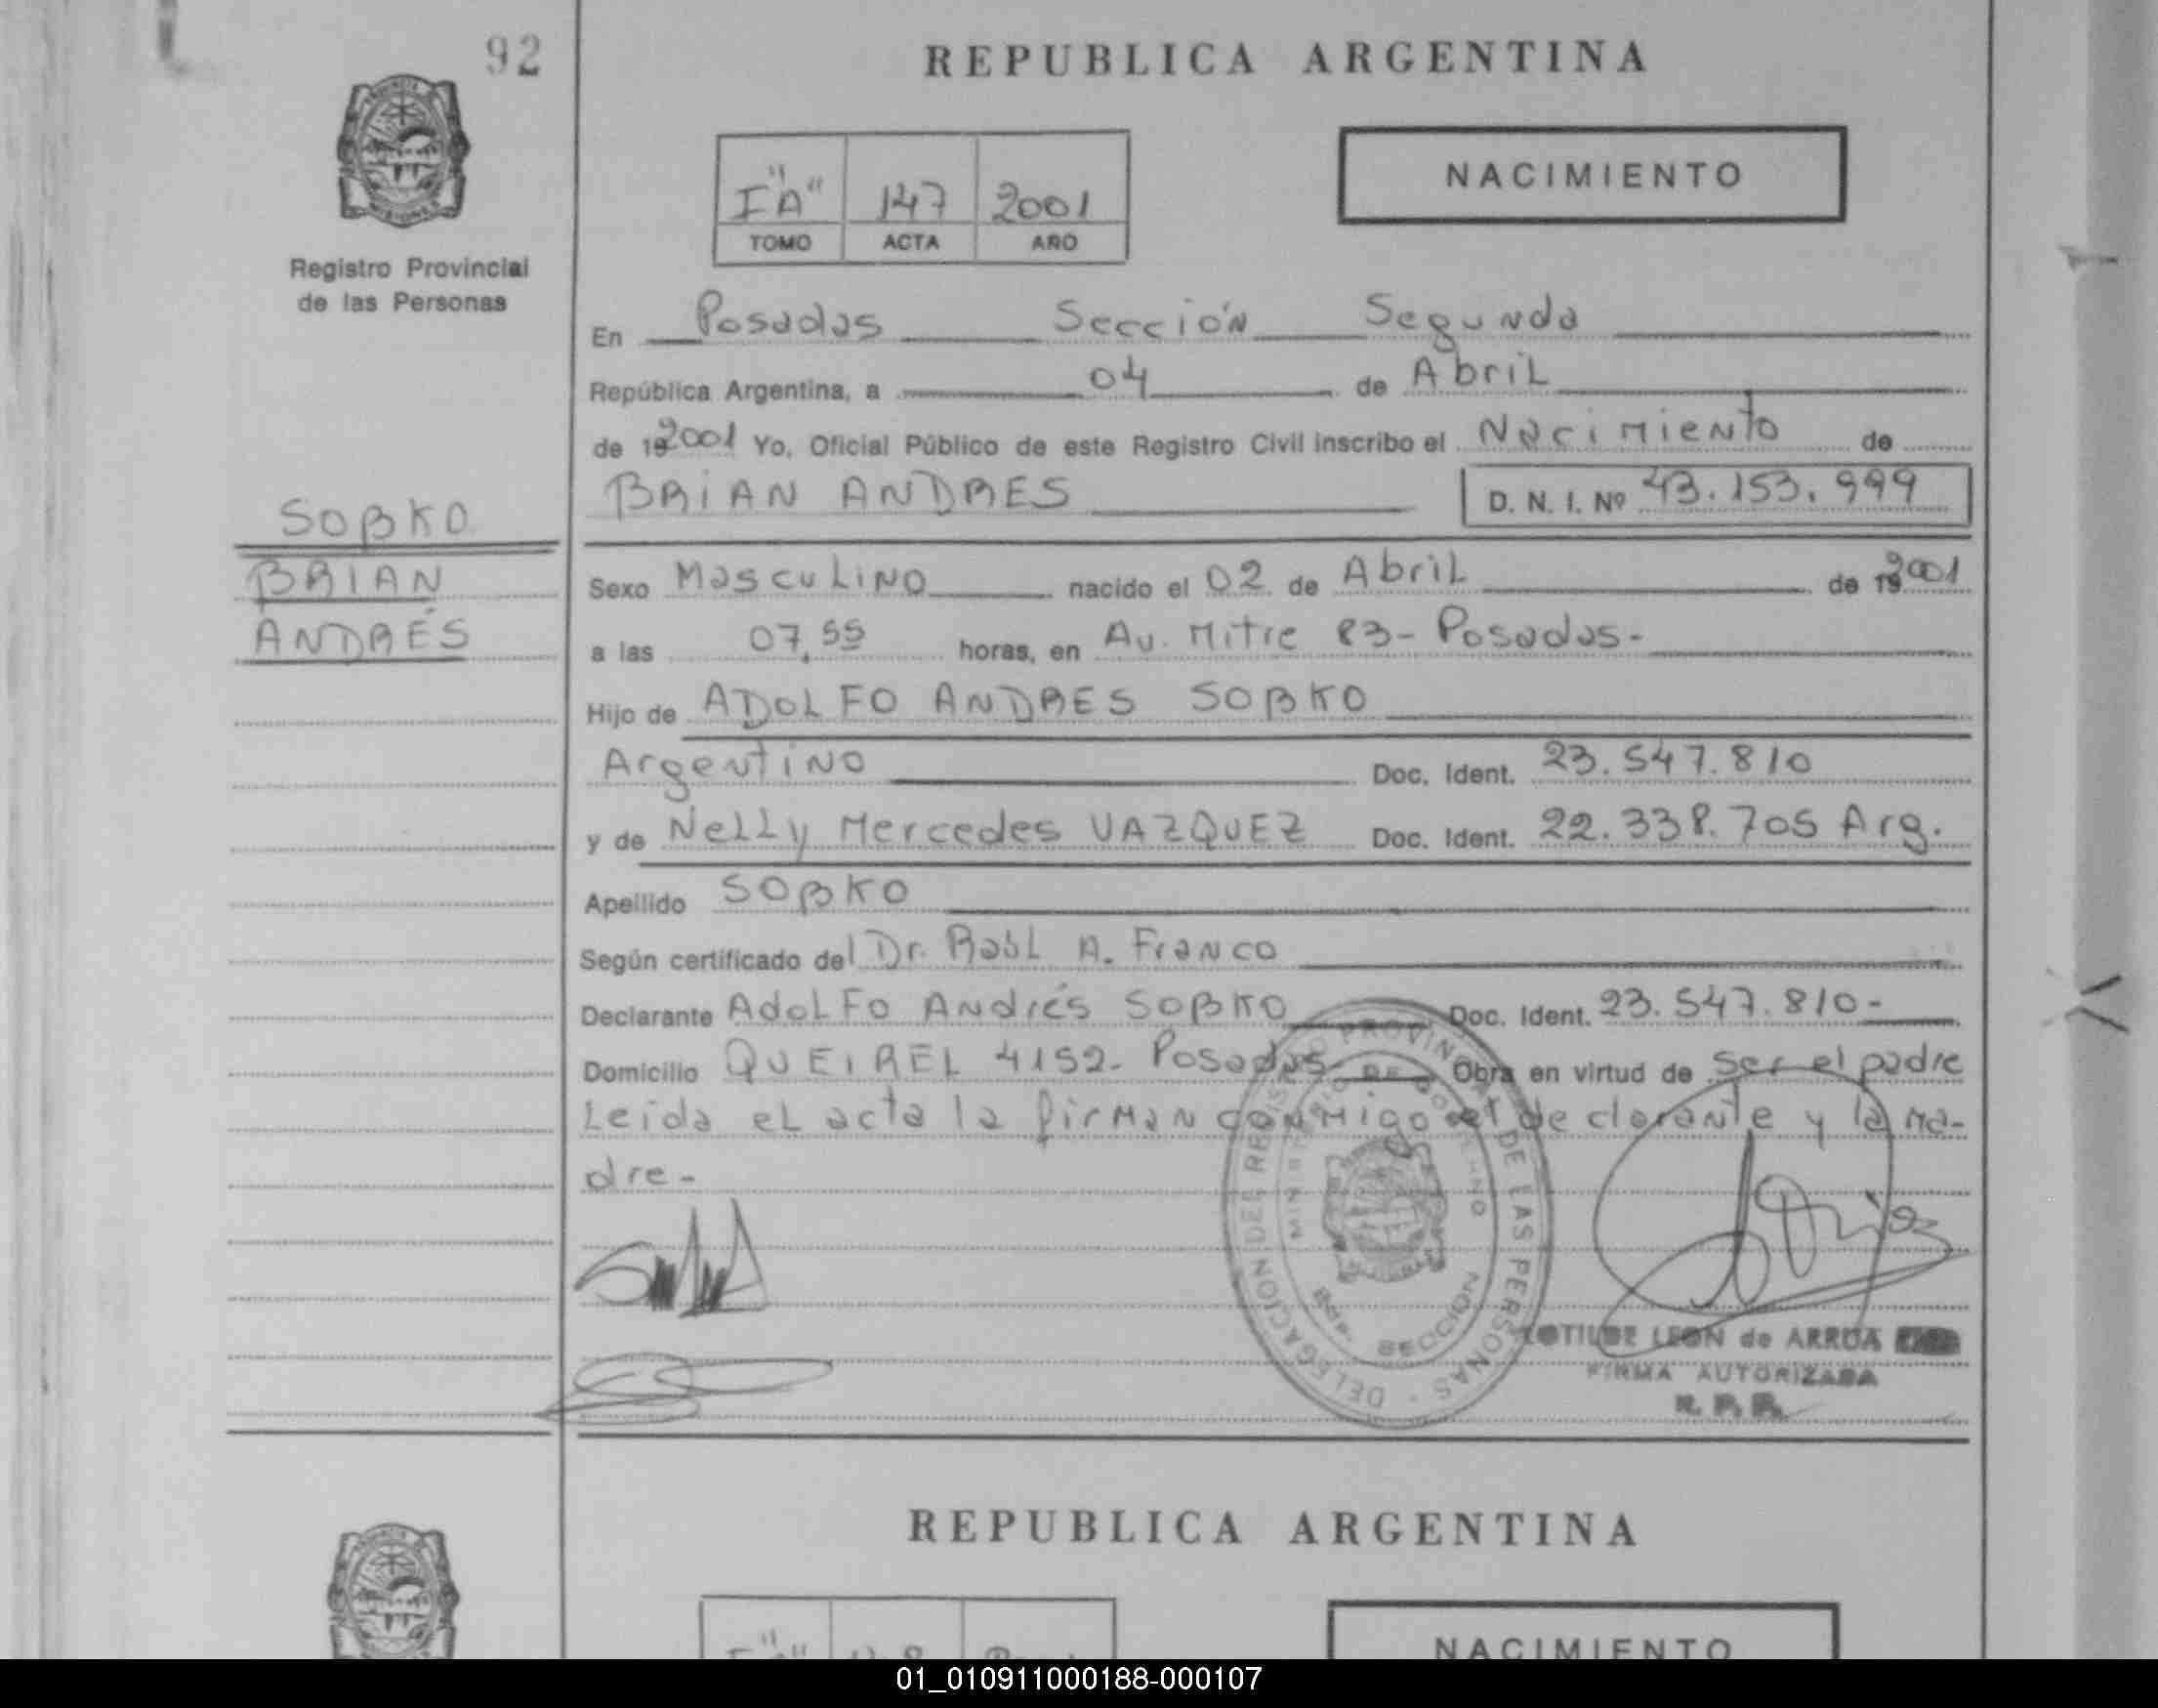 92
REPUBLICA ARGENTINA
I "A" 147 2001
TOMO ACTA AÑO
NACIMIENTO
Registro Provincial
de las Personas
En Posadas Sección Segunda
República Argentina, a 04 de Abril
de 192001 Yo, Oficial Público de este Registro Civil inscribo el Nacimiento de
BRIAN ANDRES D. N. I. Nº 43.153.999
SOBKO
BRIAN
ANDRÉS
Sexo Masculino nacido el 02 de Abril de 192001
a las 07,55 horas, en Av. Mitre 83- Posadas-
Hijo de ADOLFO ANDRES SOBKO
Argentino Doc. Ident. 23.547.810
y de Nelly Mercedes VAZQUEZ Doc. Ident. 22.338.705 Arg.
Apellido SOBKO
Según certificado del Dr. Raúl A. Franco
Declarante Adolfo Andrés SOBKO Doc. Ident. 23.547.810-
Domicilio QUEIREL 4152- Posadas Obra en virtud de ser el padre
Leida el acta la firman conmigo el declarante y la ma-
dre-
DELEGACION DEL REGISTRO PROVINCIAL DE LAS PERSONAS
MINISTERIO DE GOBIERNO
SECCION
LEON de ARRUA
FIRMA AUTORIZADA
R. P. P.
REPUBLICA ARGENTINA
NACIMIENTO
01_010911000188-000107